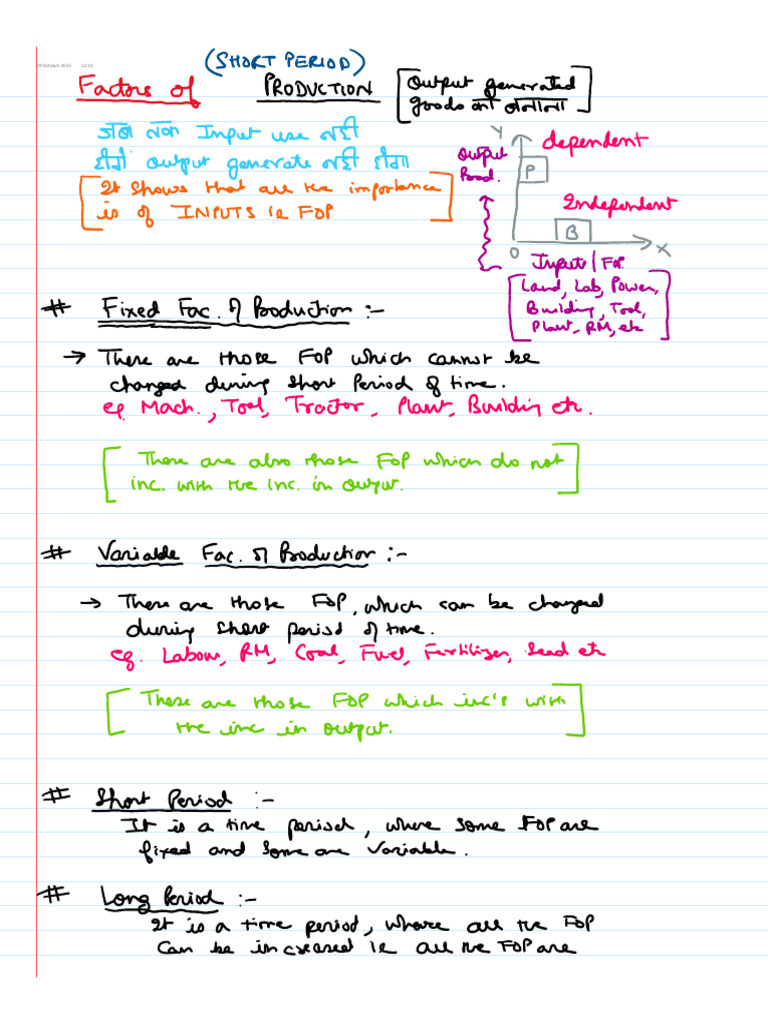 19 October 2023 12:10
(SHORT PERIOD)
Factors of PRODUCTION [Output generated
goods का बनाना]
जब तक Input use नही
होंगे output generate नही होगा
[It shows that all the importance
is of INPUTS ie FOP]
Y
dependent
Output
Prod.
P
Independent
B
O
X
Inputs/FOP
[Land, Lab, Power,
Building, Tool,
Plant, RM, etc]
# Fixed Fac. of Production :-
→ There are those FOP which cannot be
changed during short Period of time.
eg. Mach., Tool, Tractor, Plant, Building etc.
[There are also those FOP which do not
inc. with the inc. in output.]
# Variable Fac. of Production :-
→ There are those FOP, which can be changed
during short period of time.
eg. Labour, RM, Coal, Fuel, Fertilizer, Seed etc
[These are those FOP which inc's with
the inc in output.]
# Short Period :-
It is a time period, where some FOP are
fixed and some are variable.
# Long Period :-
It is a time period, where all the FOP
can be increased ie all the FOP are